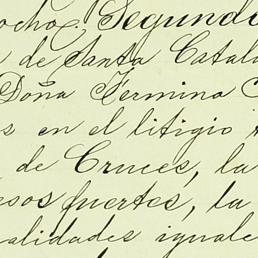 ocho, Segundo
de Santa Catal
Doña Fermina C
s en el litigio
de Cruces, la
esos fuertes, la
alidades iguale